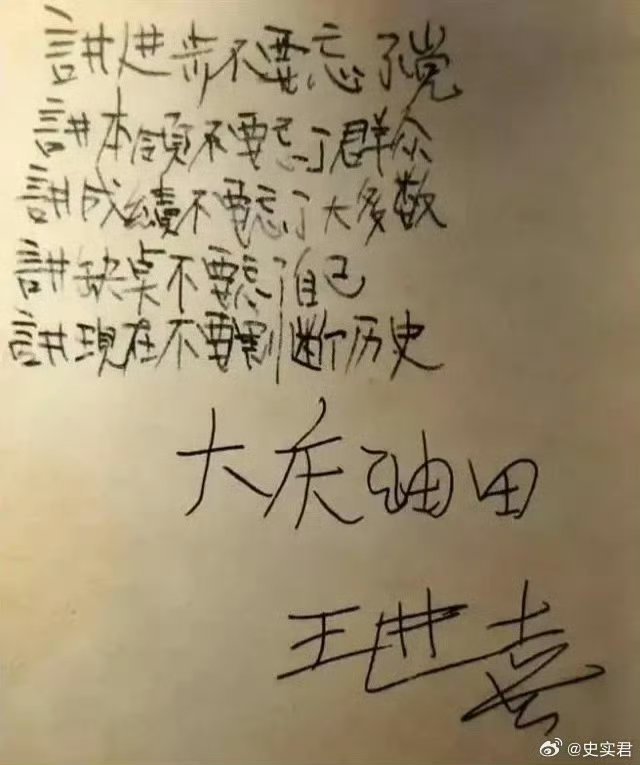 讲进步不要忘了党
讲本领不要忘了群众
讲成績不要忘了大多数
讲缺点不要忘了自己
讲現在不要割断历史
大庆油田
王进喜
@史实君